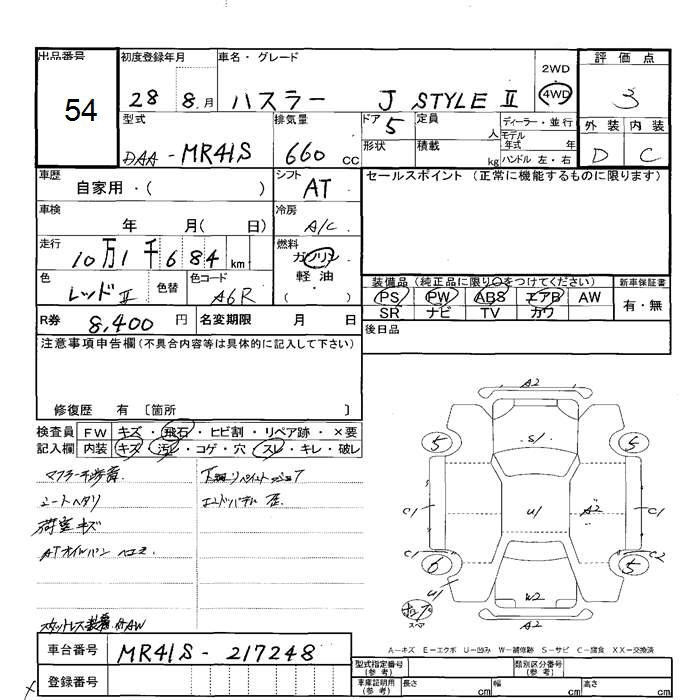 出品番号
54
初度登録年月
28 8 月
車名・グレード
ハスラー J STYLE Ⅱ
2WD
4WD
評価点
3
型式
DAA-MR41S
排気量
660 cc
ドア
5
形状
定員
人
積載
kg
ディーラー・並行
モデル
年式 年
ハンドル 左・右
外装 内装
D C
車歴
自家用・( )
シフト
AT
セールスポイント (正常に機能するものに限ります)
車検
年 月( 日)
冷房
A/C
走行
10万1千684 km
燃料
ガソリン
軽油
( )
色
レッドⅡ
色替
色コード
A6R
装備品(純正品に限り○をつけてください)
PS PW ABS エアB AW
SR ナビ TV カワ
新車保証書
有・無
R券 8,400 円
名変期限 月 日
後日品
注意事項申告欄(不具合内容等は具体的に記入して下さい)
修復歴 有 〔箇所 〕
検査員 FW キズ・飛石・ヒビ割・リペア跡・×要
記入欄 内装 キズ・汚レ・コゲ・穴・スレ・キレ・破レ
シートヘタリ
荷室キズ
ATオイルパン ヘコミ
エンドパネル 歪
A2
5
S/
5
C1
U1
A2
C1
C1
C2
6
5
U1
W2
スペア
A2
A―キズ E―エクボ U―凹み W―補修跡 S―サビ C―腐食 XX―交換済
車台番号 MR41S-217248
登録番号
型式指定番号
(参考)
類別区分番号
(参考)
車庫証明用
(参考)
長さ cm
幅 cm
高さ cm